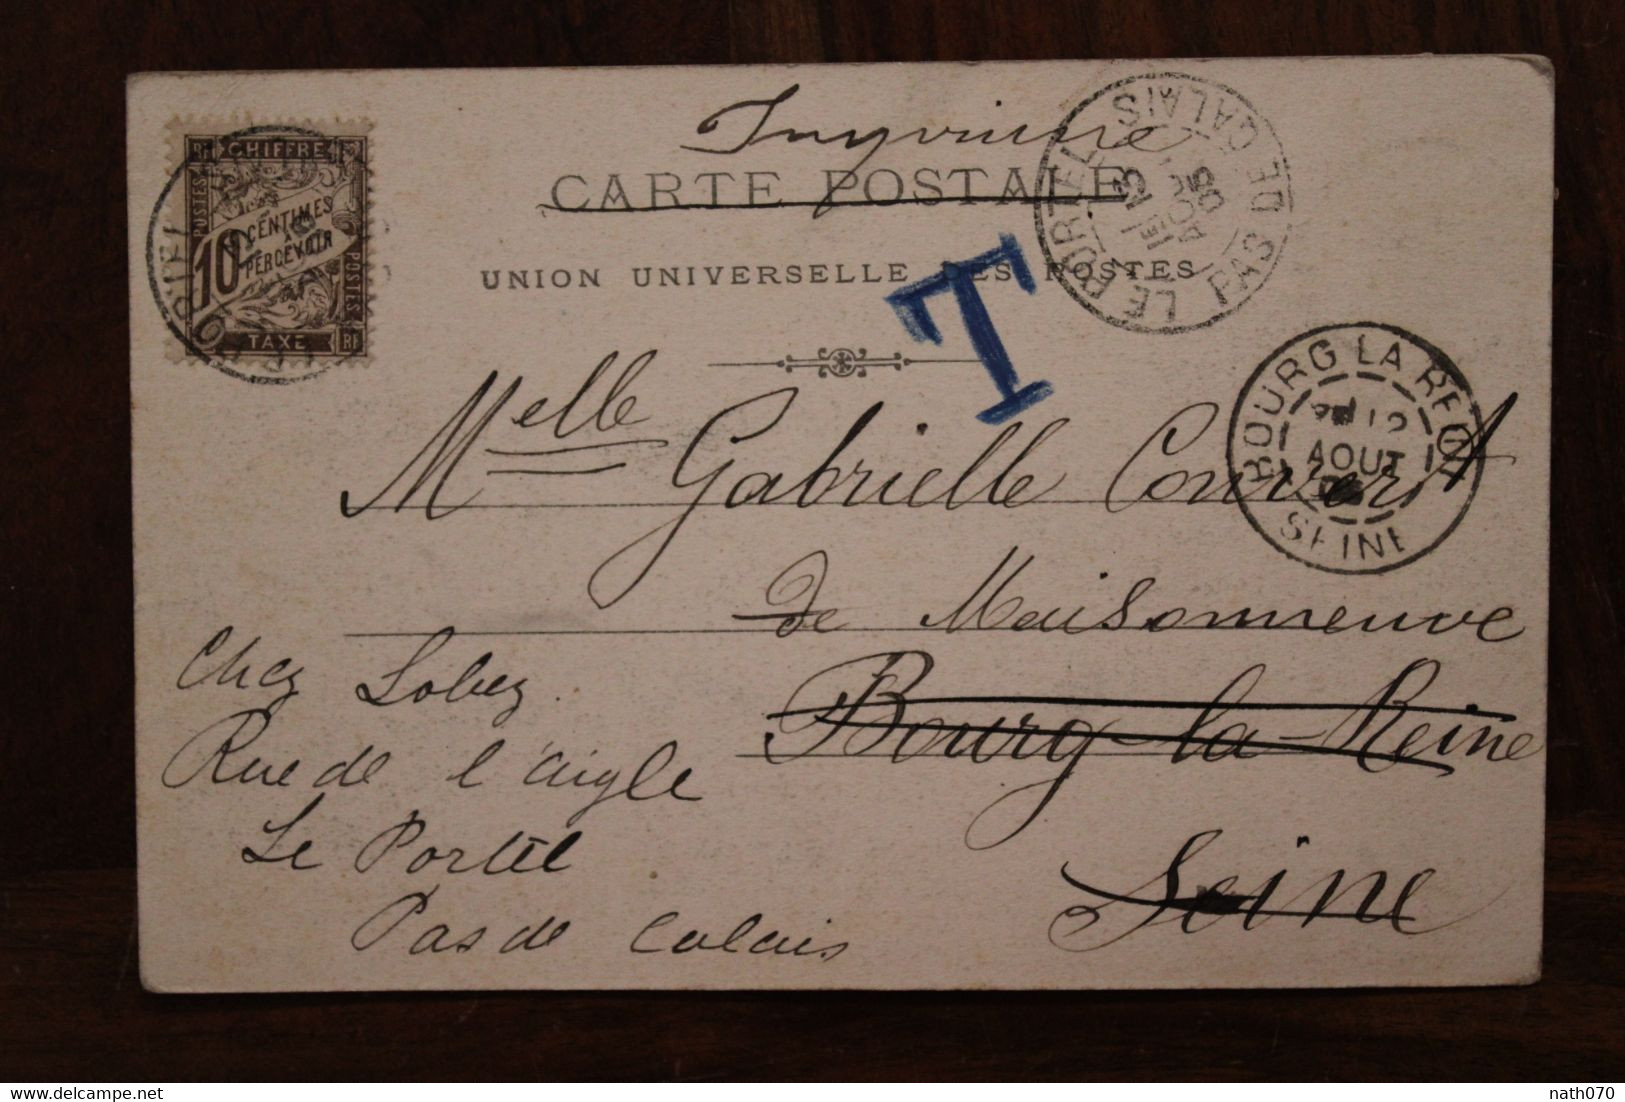 Imprimé
CARTE POSTALE
UNION UNIVERSELLE DES POSTES
T
RF CHIFFRE
POSTES
10 CENTIMES
A
PERCEVOIR
POSTES
TAXE RF
LE PORTEL PAS DE CALAIS
13
AOUT
05
BOURG LA REINE
12
AOUT
SEINE
Melle Gabrielle Convert
de Maisonneuve
Bourg-la-Reine
Seine
Chez Lobez
Rue de l'aigle
Le Portel
Pas de Calais
delcampe.net
nath070